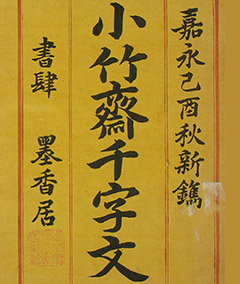 嘉永己酉秋新鐫
小竹齋千字文
書肆 墨香居